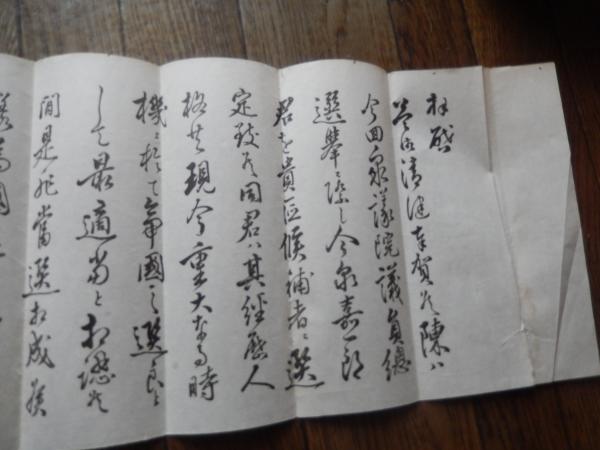 拝啓
益御清健奉賀候陳ハ
今回衆議院議員総
選挙ニ際し今泉嘉一郎
君を貴区候補者ニ選
定致候同君ハ其経歴人
格共現今重大なる時
機ニ於て帝国之選良と
して最適当と相認候
間是非当選相成候